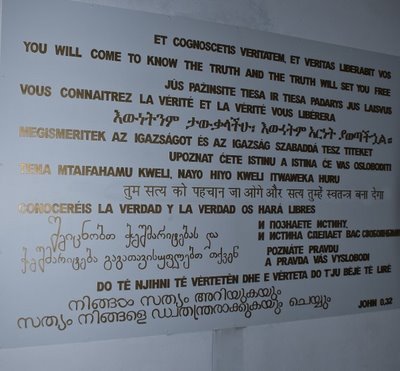 ET COGNOSCETIS VERITATEM, ET VERITAS LIBERABIT VOS
YOU WILL COME TO KNOW THE TRUTH AND THE TRUTH WILL SET YOU FREE
JŪS PAŽINSITE TIESA IR TIESA PADARYS JUS LAISVUS
VOUS CONNAITREZ LA VÉRITÉ ET LA VÉRITÉ VOUS LIBÉRERA
እውነትንም ታውቃላችሁ፥ እውነትም አርነት ያወጣችኋል
MEGISMERITEK AZ IGAZSÁGOT ÉS AZ IGAZSÁG SZABADDÁ TESZ TITEKET
UPOZNAT ĆETE ISTINU A ISTINA ĆE VAS OSLOBODITI
TENA MTAIFAHAMU KWELI, NAYO HIYO KWELI ITWAWEKA HURU
तुम सत्य को पहचान जा ओगे और सत्य तुम्हें स्वतन्त्र बना देगा
CONOCERÉIS LA VERDAD Y LA VERDAD OS HARÁ LIBRES
И ПОЗНАЕТЕ ИСТИНУ,
И ИСТИНА СДЕЛАЕТ ВАС СВОБОДНЫМИ
შეიცნობთ ჭეშმარიტებას და
ჭეშმარიტება გაგათავისუფლებთ თქვენ
POZNÁTE PRAVDU
A PRAVDA VÁS VYSLOBODI
DO TË NJIHNI TË VËRTETËN DHE E VËRTETA DO T'JU BËJË TË LIRË
നിങ്ങൾ സത്യം അറിയുകയും
സത്യം നിങ്ങളെ സ്വതന്ത്രരാക്കുകയും ചെയ്യും
JOHN 8,32